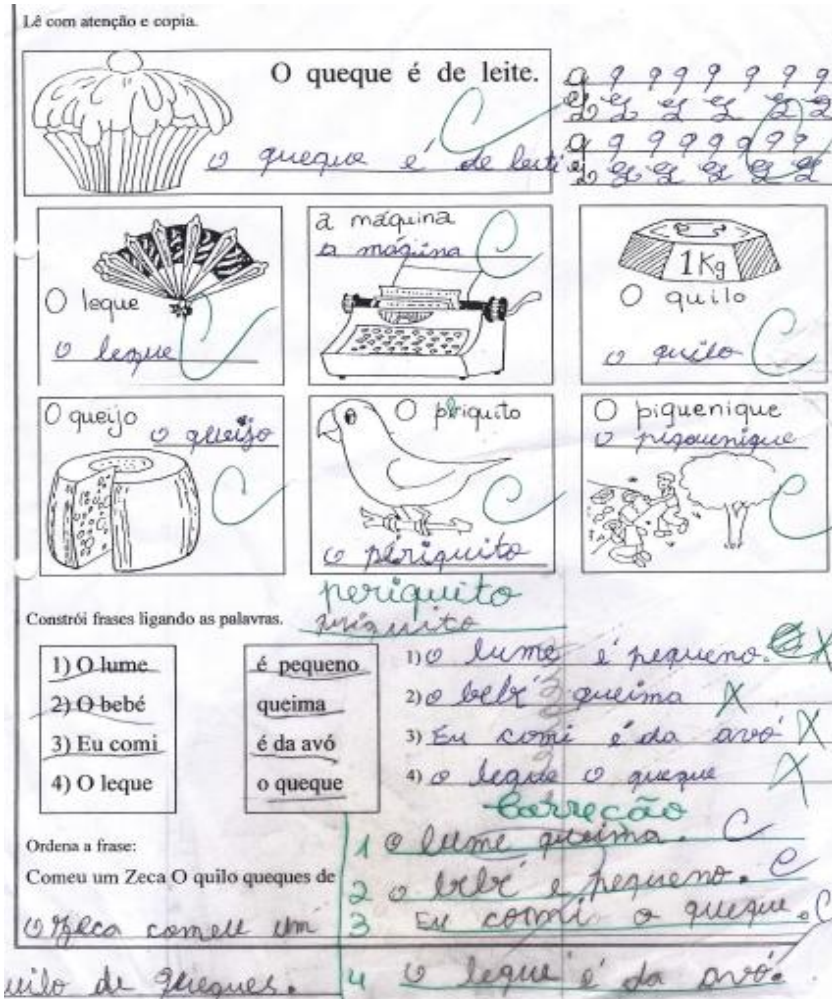 Lê com atenção e copia.
O queque é de leite.
o queque é de leite
q q q q q q q q
q q q q q q q q
a máquina
a máquina
1Kg
O leque
o leque
O quilo
o quilo
O queijo
o queijo
O periquito
o periquito
O piquenique
o piquenique
periquito
Constrói frases ligando as palavras.
1) O lume
2) O bebé
3) Eu comi
4) O leque
é pequeno
queima
é da avó
o queque
1) o lume é pequeno.
2) o bebé queima
3) Eu comi é da avó
4) o leque o queque
Correção
1 o lume queima. C
2 o bebé é pequeno. C
3 Eu comi o queque. C
4 o leque é da avó.
Ordena a frase:
Comeu um Zeca O quilo queques de
O Zeca comeu um
uilo de queques.